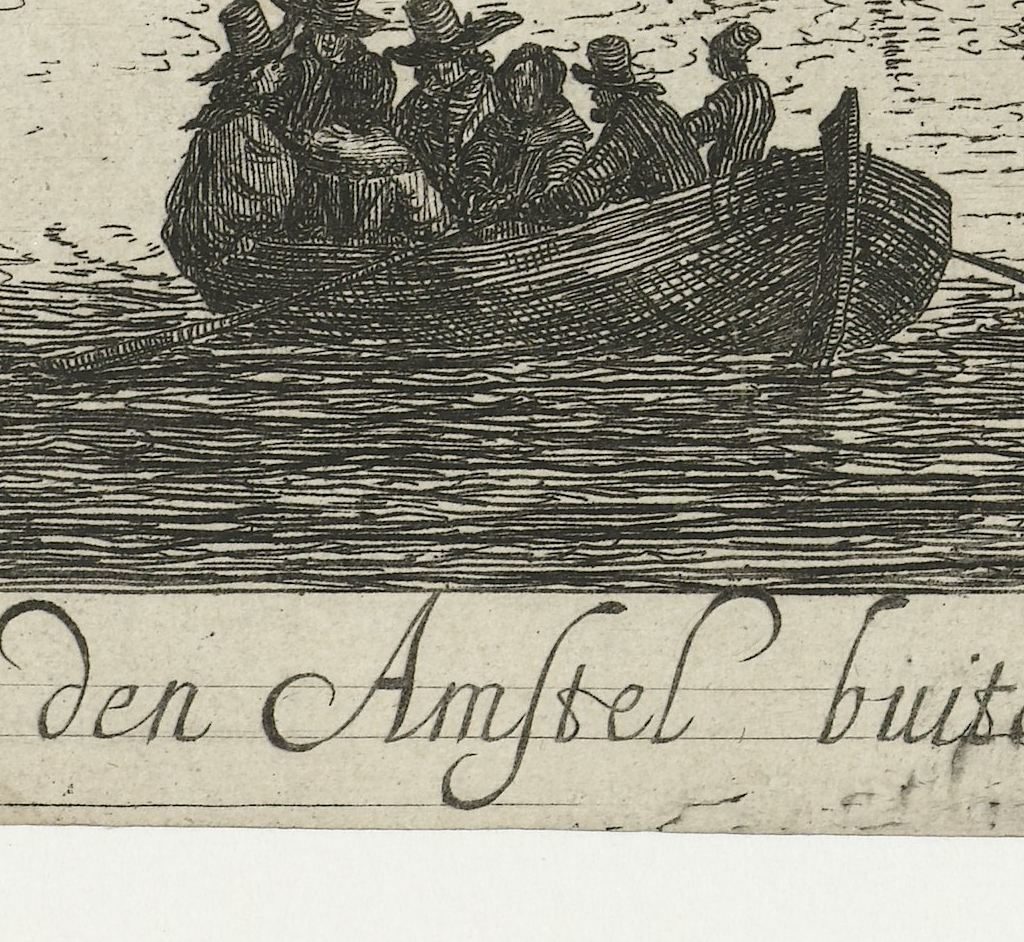 den Amſtel buite